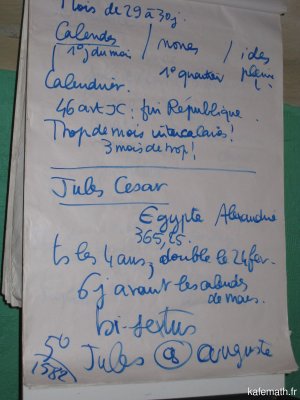 Mois de 29 à 30j.
Calendes / nones / ides
1er j du mois 1er quartier pleine
Calendrier.
46 avt JC : fin République.
Trop de mois intercalaires!
3 mois de trop!
Jules Cesar
Egypte Alexandrie
365,25.
ts les 4 ans, double le 24 fev.
6j avant les calendes
de mars.
bi-sextus
50
1582 Jules @ auguste
kafemath.fr